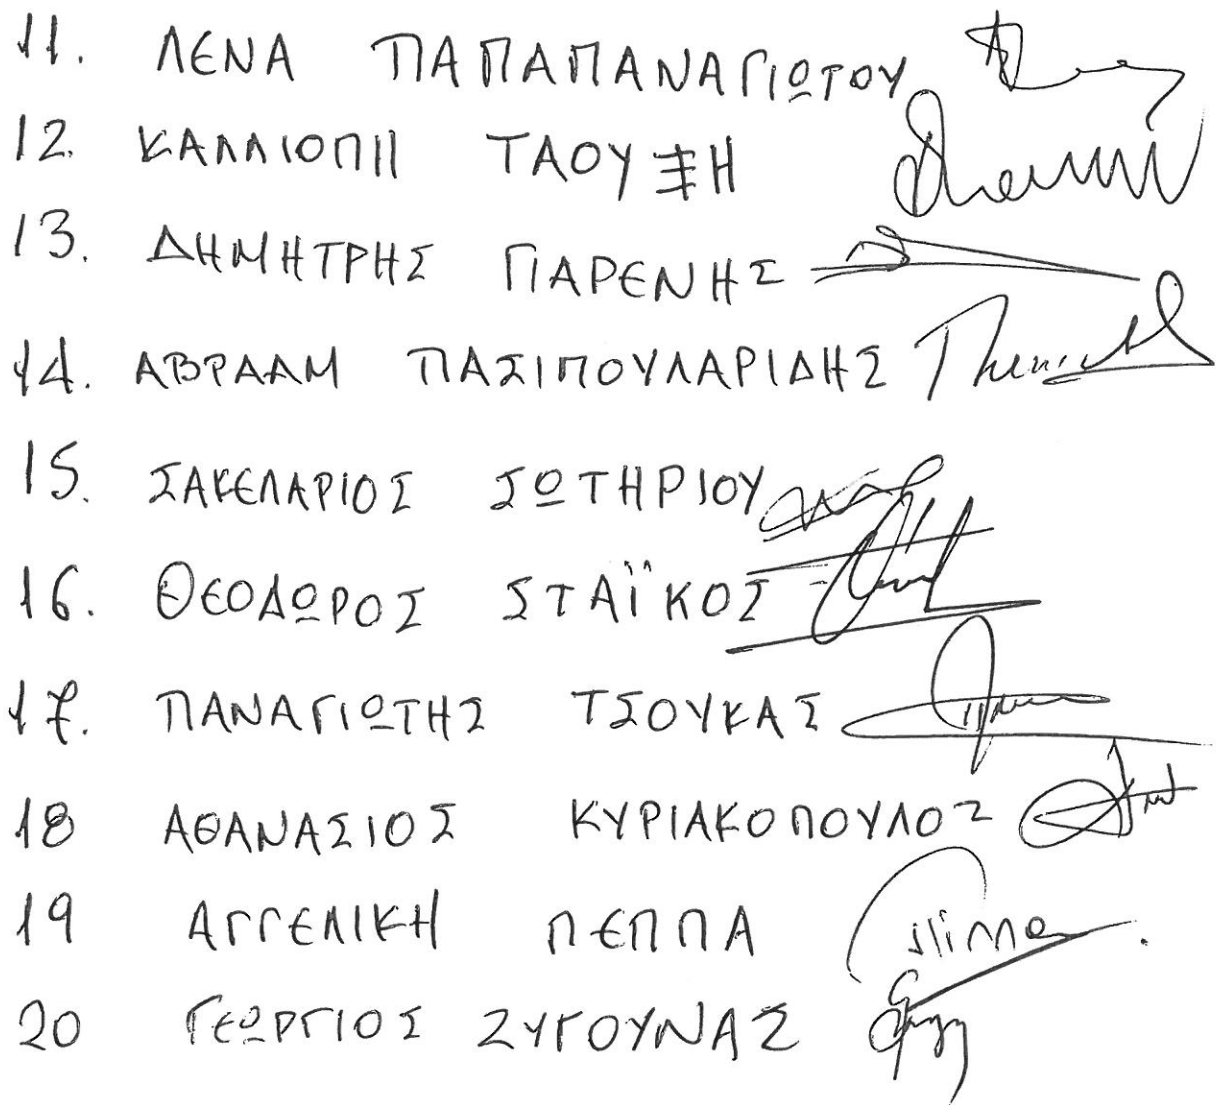 11. ΛΕΝΑ ΠΑΠΑΠΑΝΑΓΙΩΤΟΥ
12. ΚΑΛΛΙΟΠΗ ΤΑΟΥΞΗ
13. ΔΗΜΗΤΡΗΣ ΠΑΡΕΝΗΣ
14. ΑΒΡΑΑΜ ΠΑΣΙΠΟΥΛΑΡΙΔΗΣ
15. ΣΑΚΕΛΑΡΙΟΣ ΣΩΤΗΡΙΟΥ
16. ΘΕΟΔΩΡΟΣ ΣΤΑΪΚΟΣ
17. ΠΑΝΑΓΙΩΤΗΣ ΤΣΟΥΚΑΣ
18 ΑΘΑΝΑΣΙΟΣ ΚΥΡΙΑΚΟΠΟΥΛΟΣ
19 ΑΓΓΕΛΙΚΗ ΠΕΠΠΑ
20 ΓΕΩΡΓΙΟΣ ΖΥΓΟΥΝΑΣ